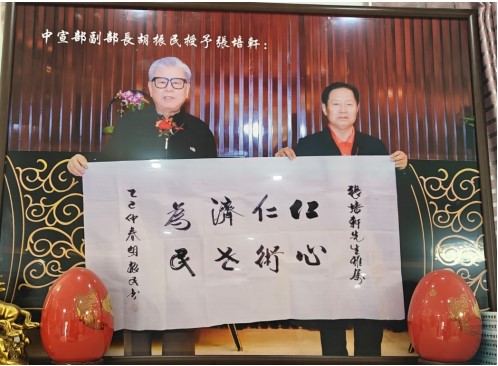 中宣部副部長胡振民授予張培軒：
張培軒先生雅屬
仁心
仁術
濟世
為民
乙巳仲春胡振民書